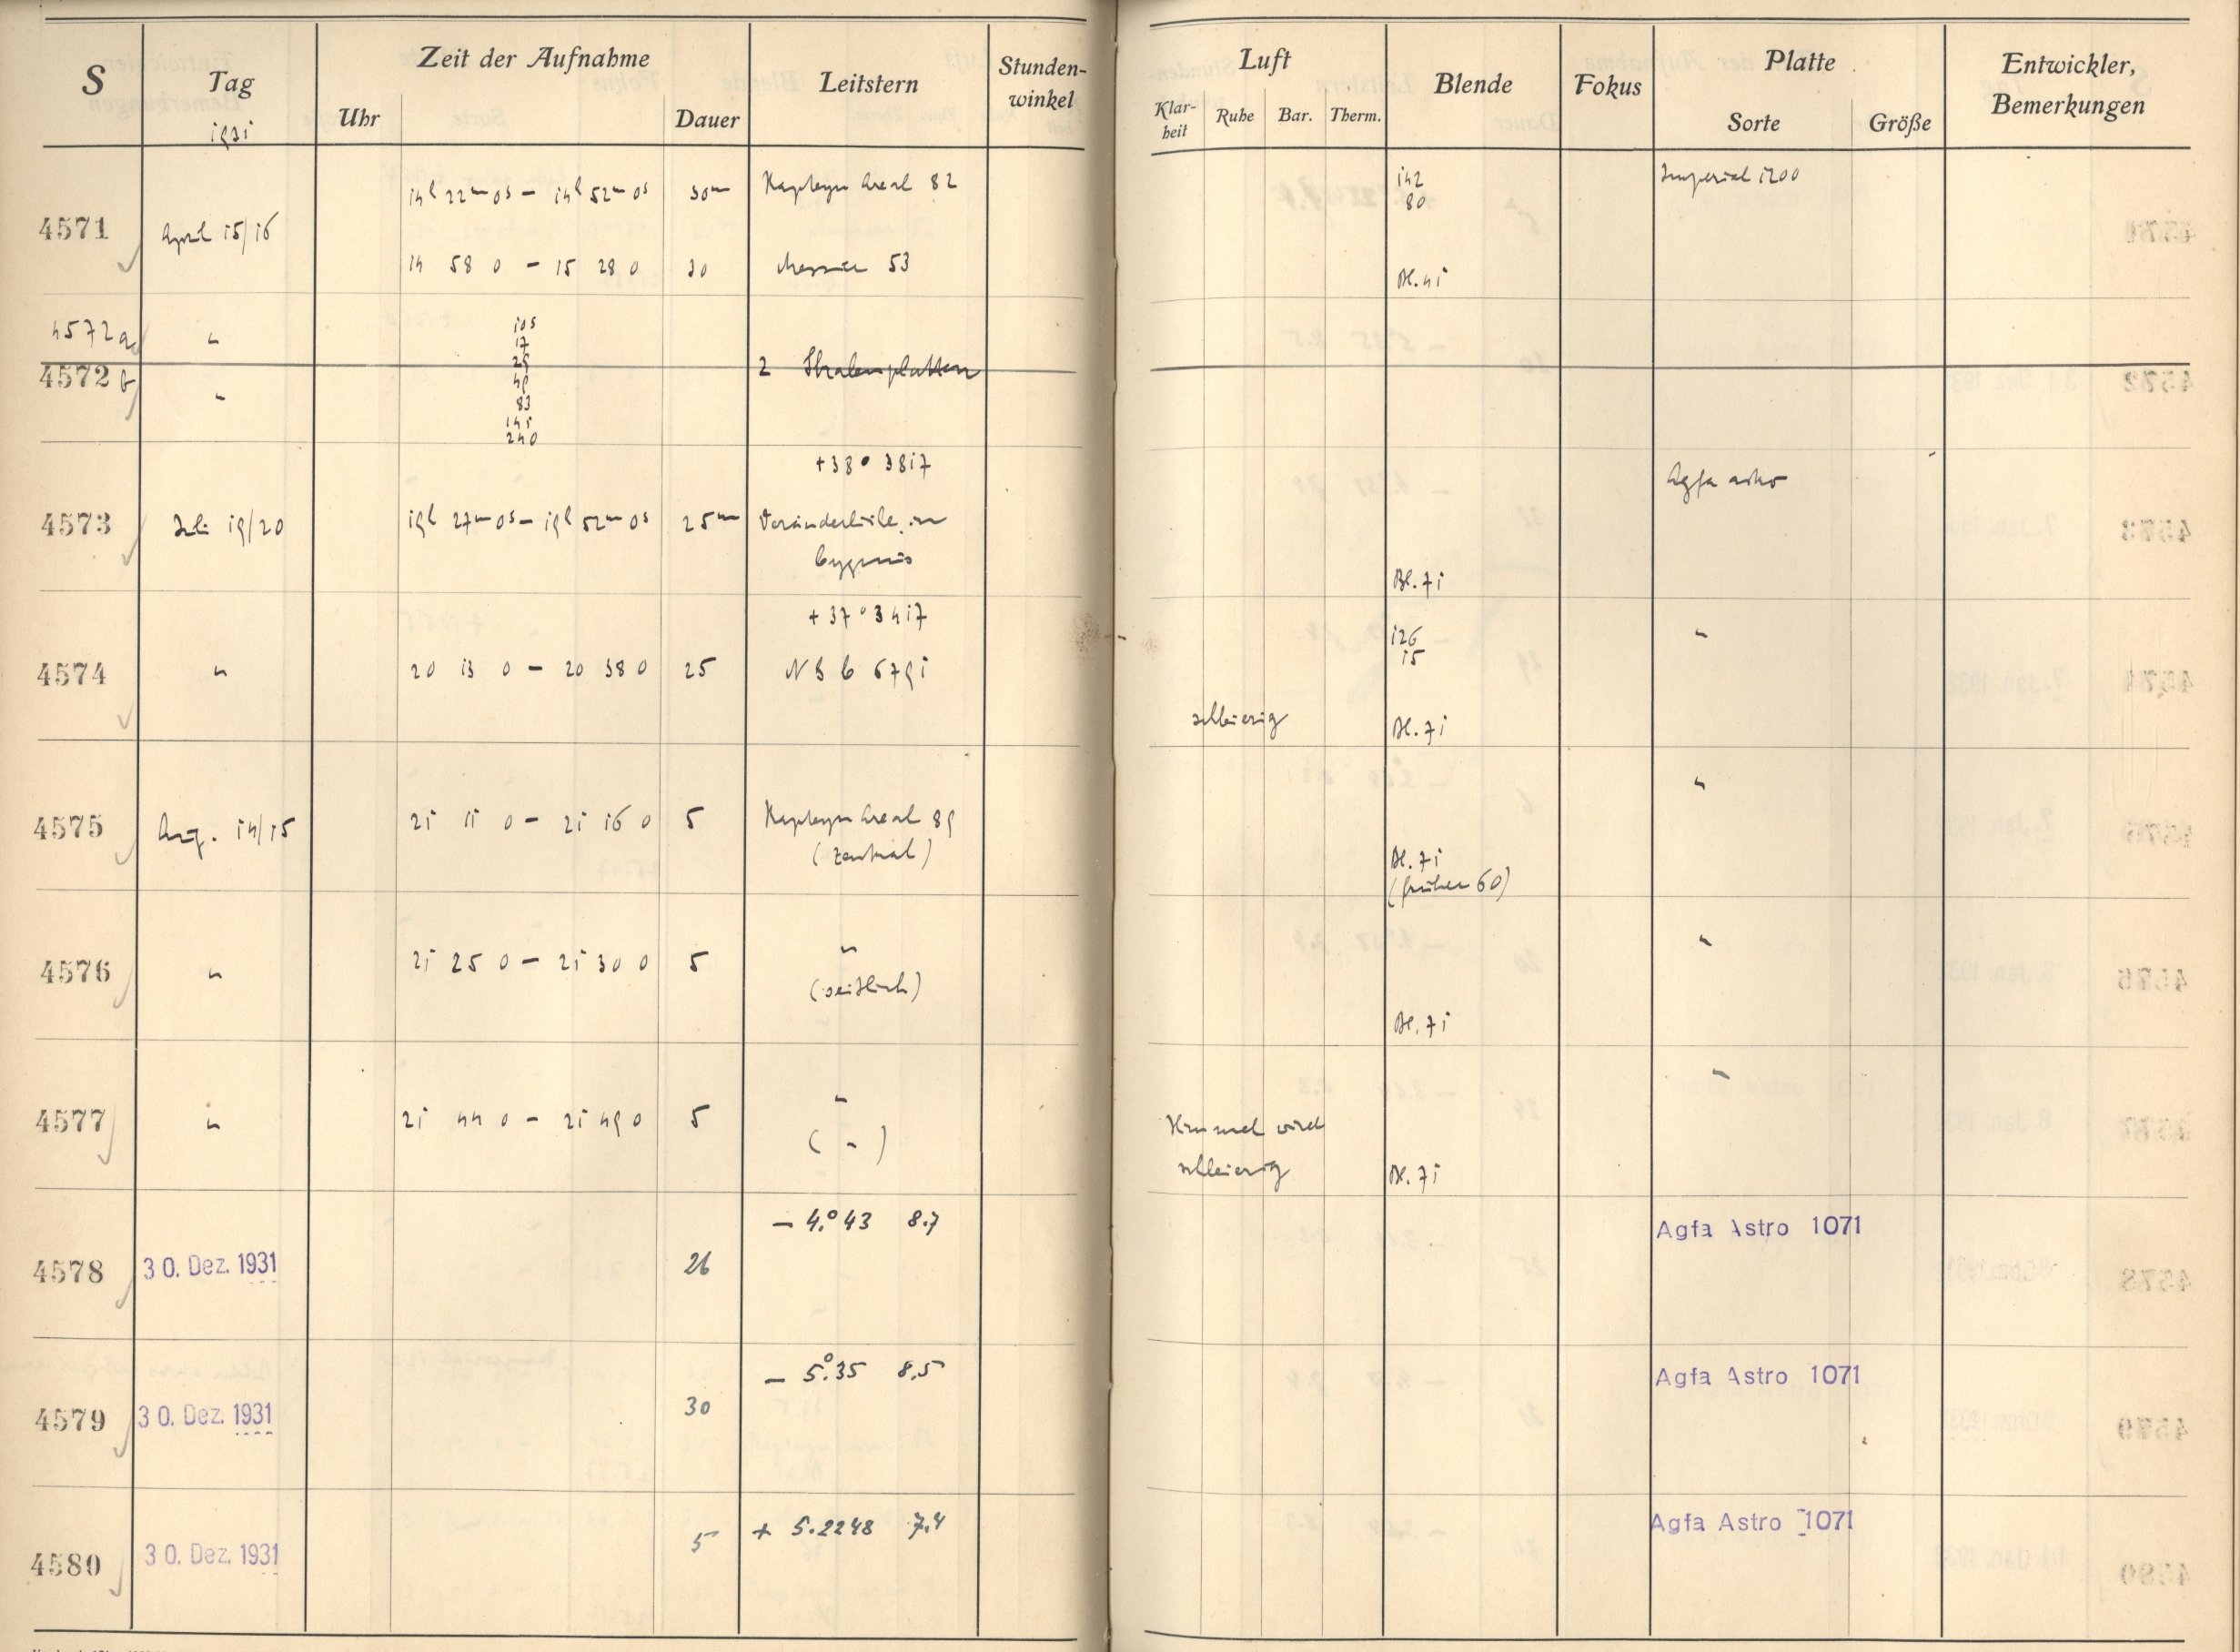 S Tag Zeit der Aufnahme Leitstern Stunden-winkel Luft Blende Fokus Platte Entwickler, Bemerkungen
1931 Uhr Dauer Klar-heit Ruhe Bar. Therm. Sorte Größe
14h 22m 0s – 14h 52m 0s 30m Kapteyn Areal 82 142 Imperial 1200
80
4571 April 15/16
14 58 0 – 15 28 0 30 Messier 53 Bl. 41
4572a " 10s
17
25
2 Skalenplatten
4572b " 49
83
141
240
+38° 3817 Agfa Astro
4573 Juli 19/20 19h 27m 0s – 19h 52m 0s 25m Veränderliche in
Cygnus Bl. 71
+37° 3417 126 "
15
4574 " 20 13 0 – 20 38 0 25 N G C 6791
schleierig Bl. 71
"
4575 Aug. 14/15 21 11 0 – 21 16 0 5 Kapteyn Areal 89
(zentral) Bl. 71
(früher 60)
4576 " 21 25 0 – 21 30 0 5 " "
(seitlich)
Bl. 71
"
4577 " 21 44 0 – 21 49 0 5 " Himmel wird
( " )
schleierig Bl. 71
– 4.°43 8.7 Agfa Astro 1071
4578 30. Dez. 1931 26
– 5.°35 8.5 Agfa Astro 1071
4579 30. Dez. 1931 30
+ 5.2248 7.4 Agfa Astro 1071
4580 30. Dez. 1931 5